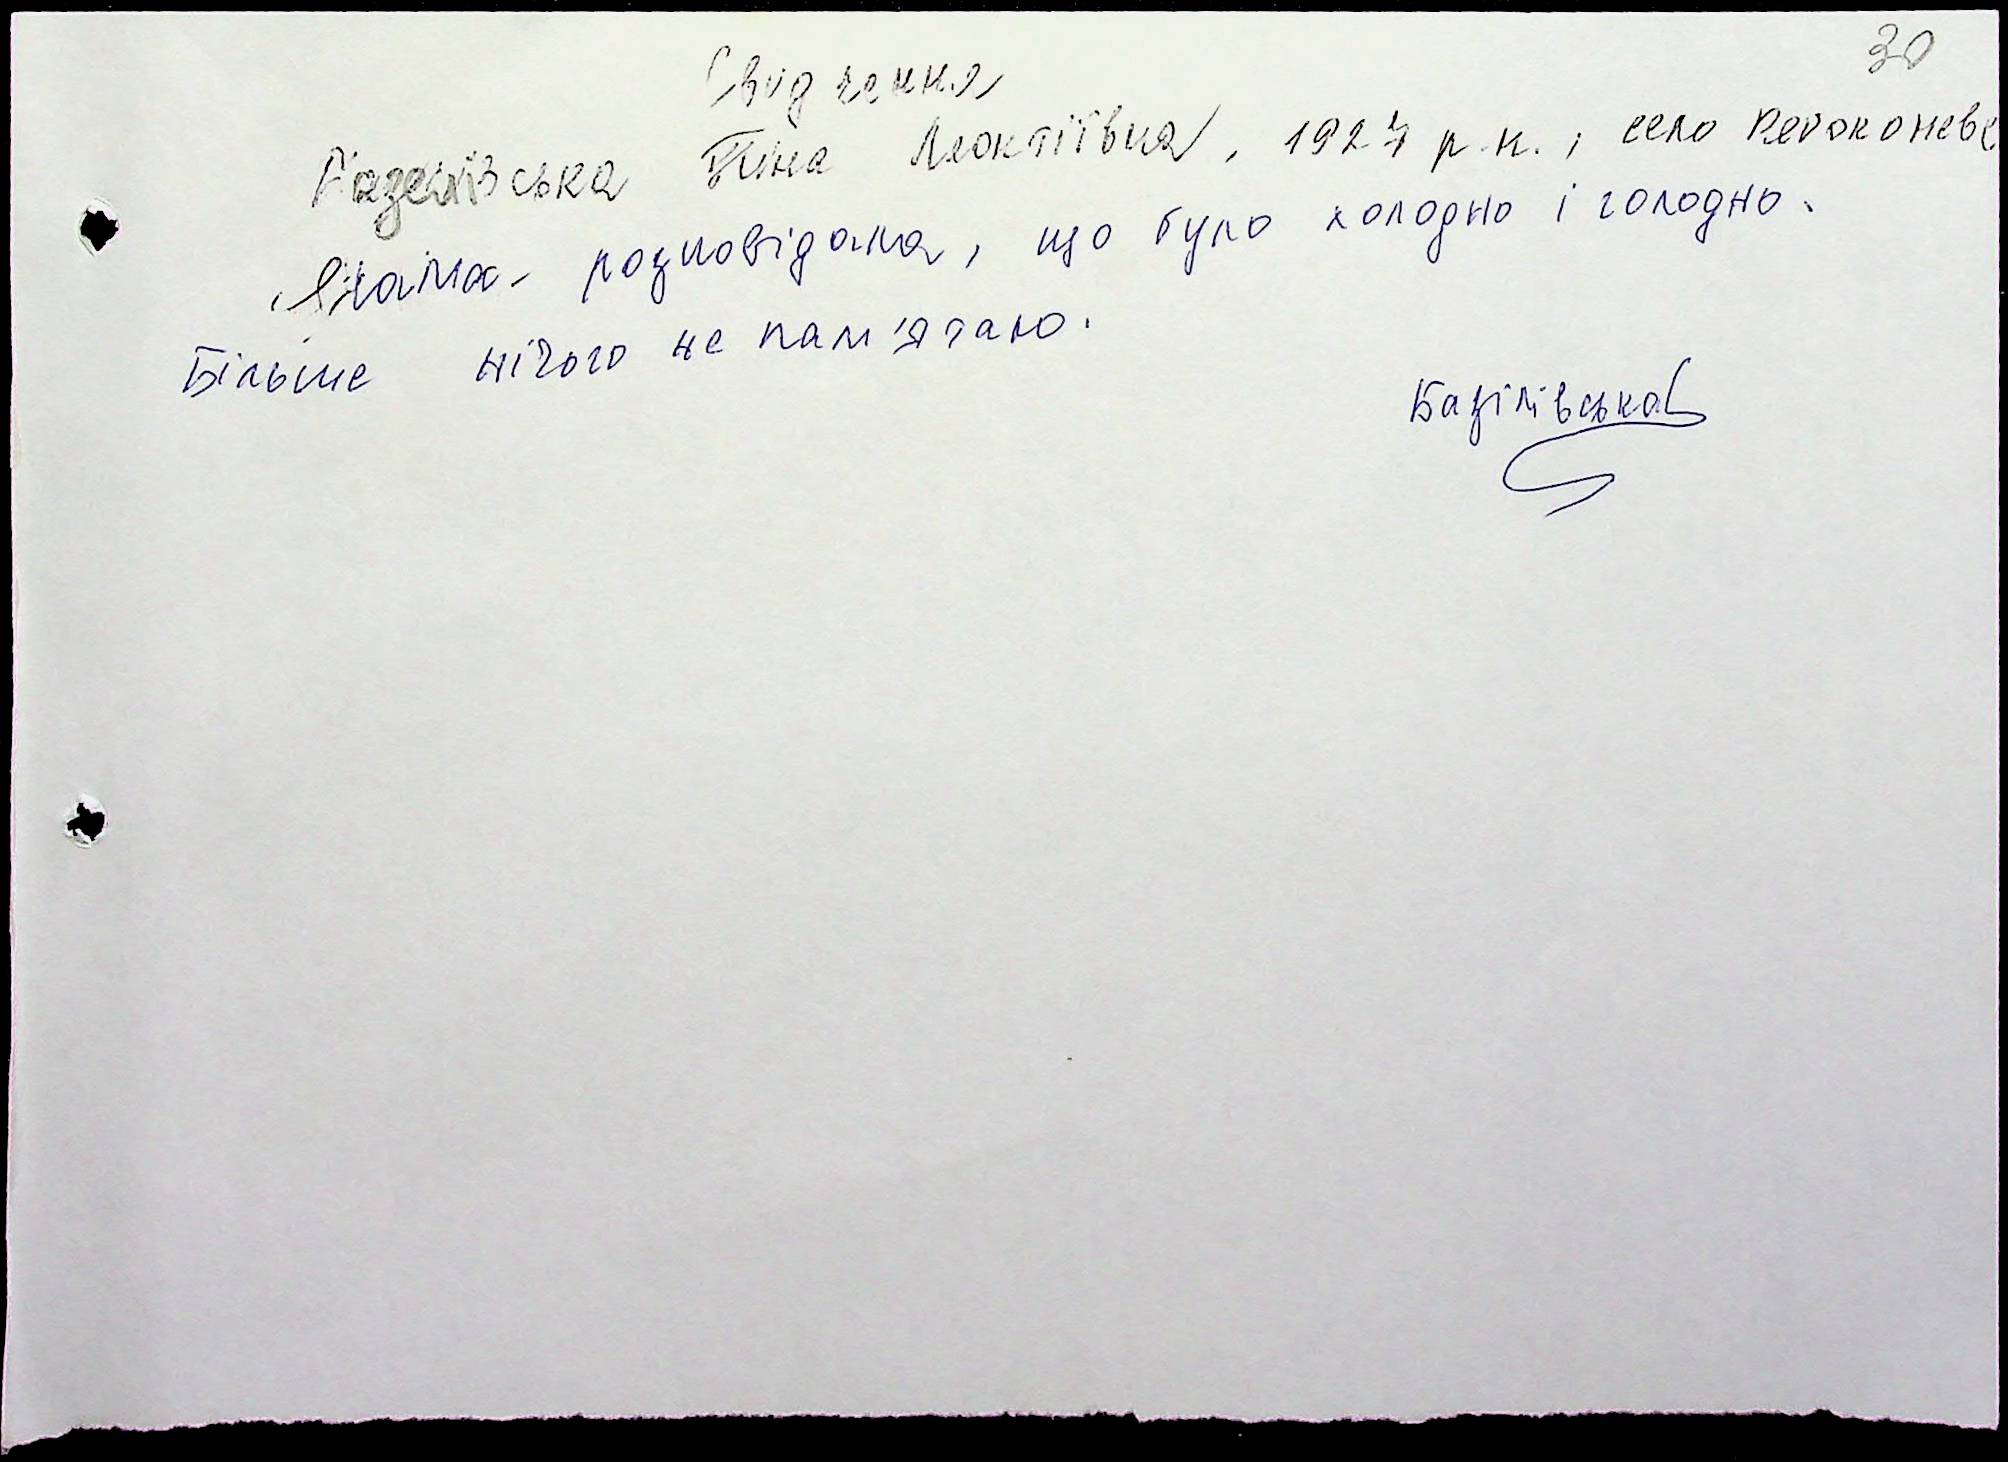 30
Свідчення
Базелівська Ніна Локтіївна, 1927 р.н., село
Мама розповідала, що було холодно і голодно.
Більше нічого не пам'ятаю.
Базілівська